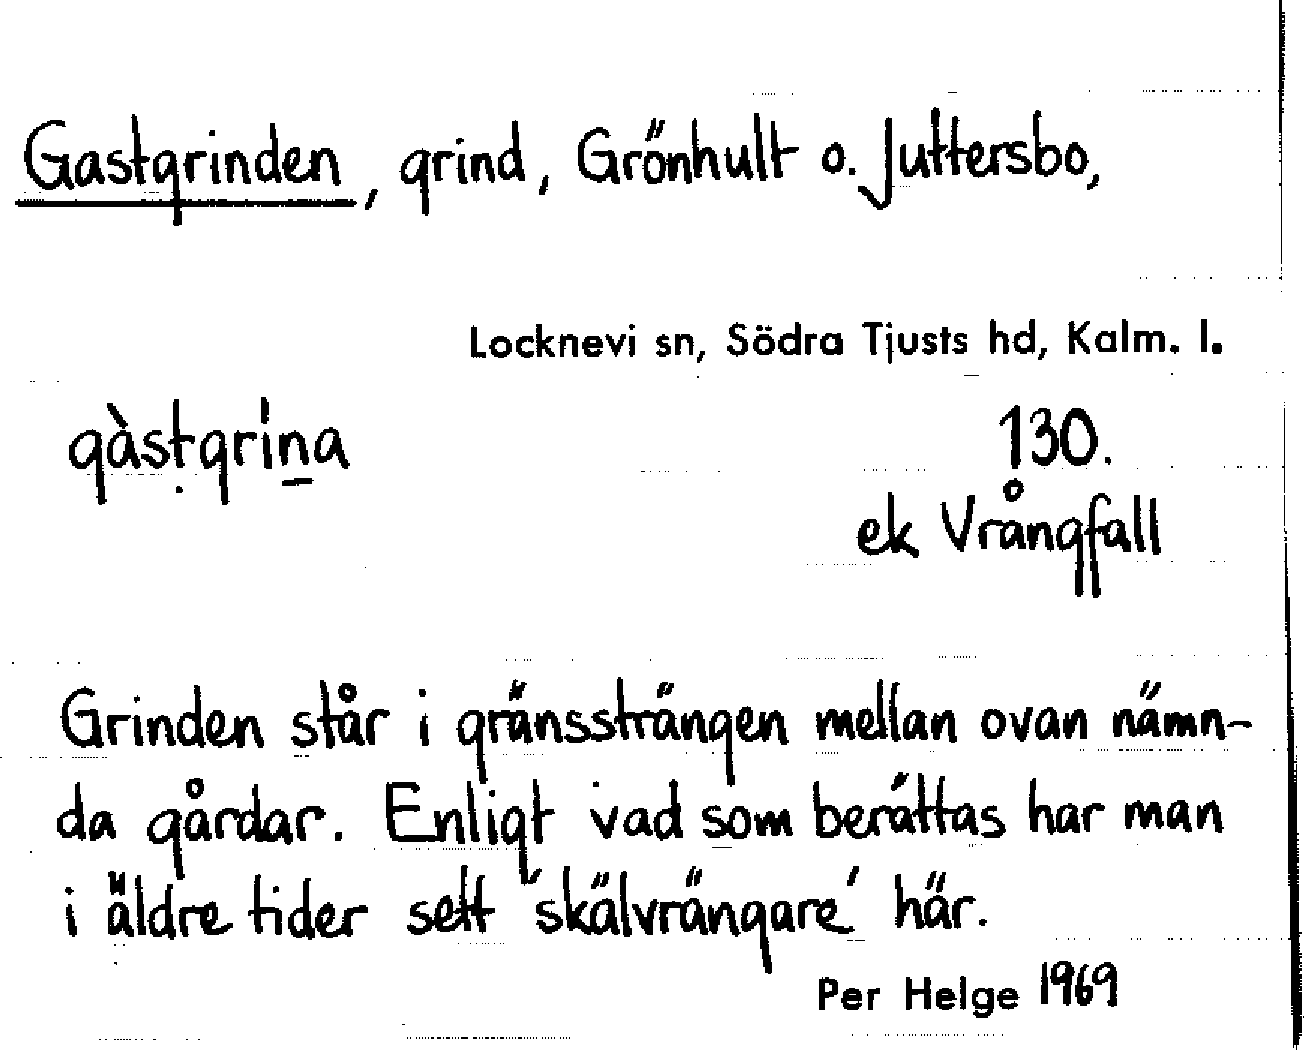 Gastgrinden, grind, Grönhult o. Juttersbo,
Locknevi sn, Södra Tjusts hd, Kalm. l.
gàsṭgrı̍n̠a
130.
ek Vrångfall
Grinden står i gränssträngen mellan ovan nämn-
da gårdar. Enligt vad som berättas har man
i äldre tider sett 'skälvrängare' här.
Per Helge 1969